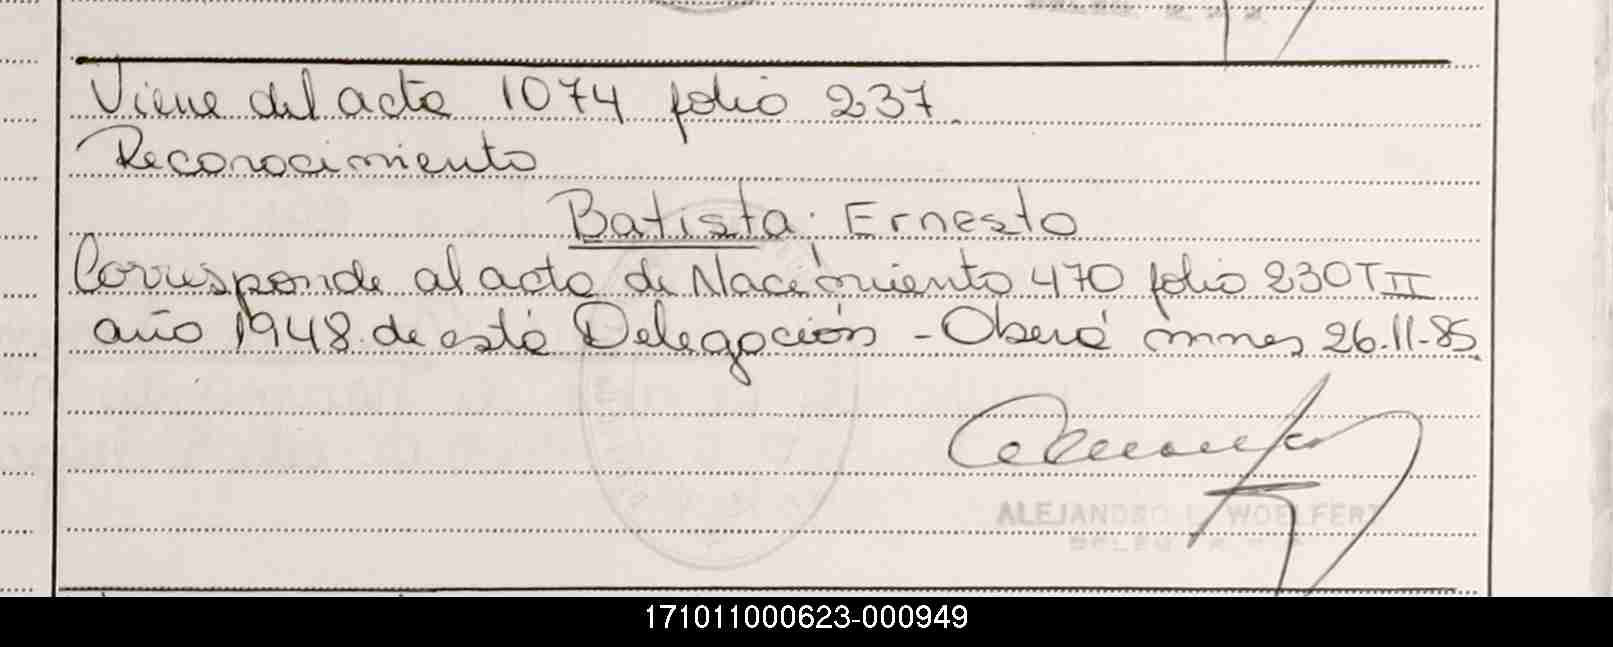 Viene del acta 1074 folio 237.
Reconocimiento
Batista: Ernesto
Corresponde al acta de Nacimiento 470 folio 230 T II
año 1948 de esta Delegación - Oberá mnes 26.11-85.
ALEJANDRO L. WOELFERT
171011000623-000949